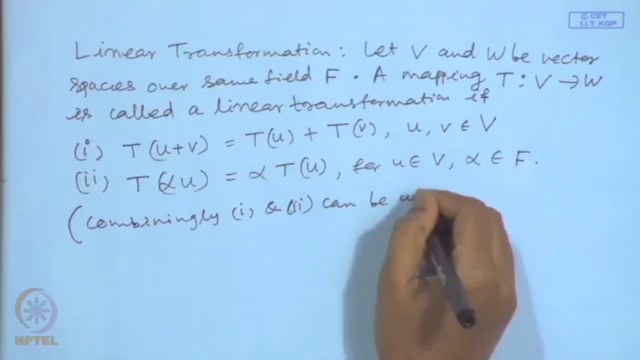 © CET
I.I.T. KGP
Linear Transformation: Let V and W be vector
spaces over same field F. A mapping T: V → W
is called a linear transformation if
(i) T(u+v) = T(u) + T(v), u, v ∈ V
(ii) T(αu) = α T(u), for u ∈ V, α ∈ F.
(Combiningly (i) & (ii) can be w
NPTEL